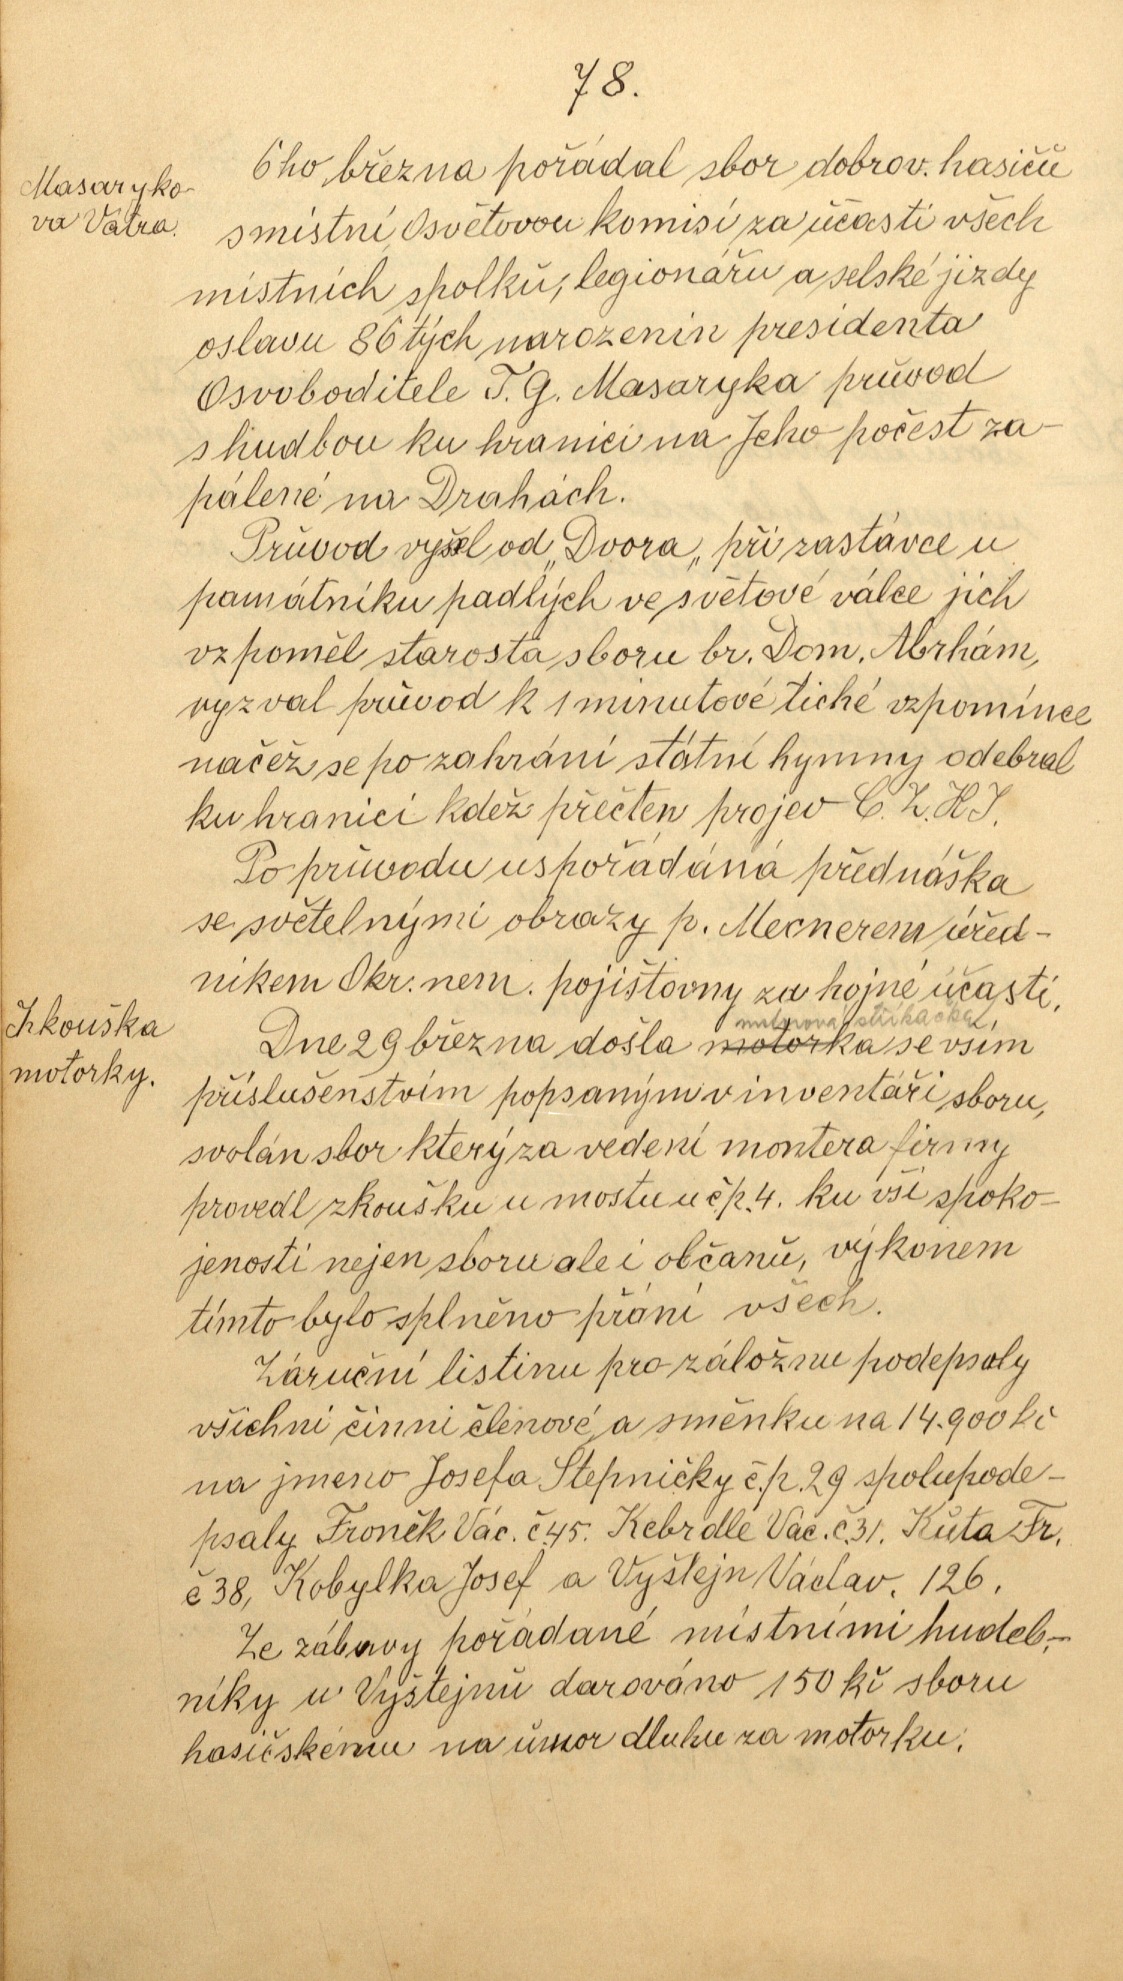 78.
Masaryko-
va Vatra.
6ho března pořádal sbor dobrov. hasičů
s místní Osvětovou komisí za účasti všech
místních spolků, legionářů a selské jízdy
oslavu 86tých narozenin presidenta
Osvoboditele T. G. Masaryka průvod
s hudbou ku hranici na Jeho počest za-
pálené na Drahách.
Průvod vyšel od „Dvora„ při zastávce u
památníku padlých ve světové válce jich
vzpoměl starosta sboru br. Dom. Abrhám,
vyzval průvod k 1 minutové tiché vzpomínce
načěž se po zahrání státní hymny odebral
ku hranici kdež přečten projev C. Z. H. J.
Po průvodu uspořádáná přednáška
se světelnými obrazy p. Mecnerem úřed-
níkem Okr. nem. pojišťovny za hojné účasti.
Zkouška
motorky.
motorová stříkačka
Dne 29 března došla motorka se vším
příslušenstvím popsaným v inventáři sboru,
svolán sbor který za vedení montera firmy
provedl zkoušku u mostu u č.p. 4. ku vší spoko-
jenosti nejen sboru ale i občanů, výkonem
tímto bylo splněno přání všech.
Záruční listinu pro záložnu podepsaly
všichni činni členové a směnku na 14.900 kč
na jmeno Josefa Štepničky č.p. 29 spolupode-
psaly Froněk Vác. č. 45. Kebrdle Vác. č. 31. Kůta Fr.
č 38, Kobylka Josef a Vyštejn Václav. 126.
Ze zábavy pořádané místními hudeb-
níky u Vyštejnů darováno 150 kč sboru
hasičskému na úmor dluhu za motorku.